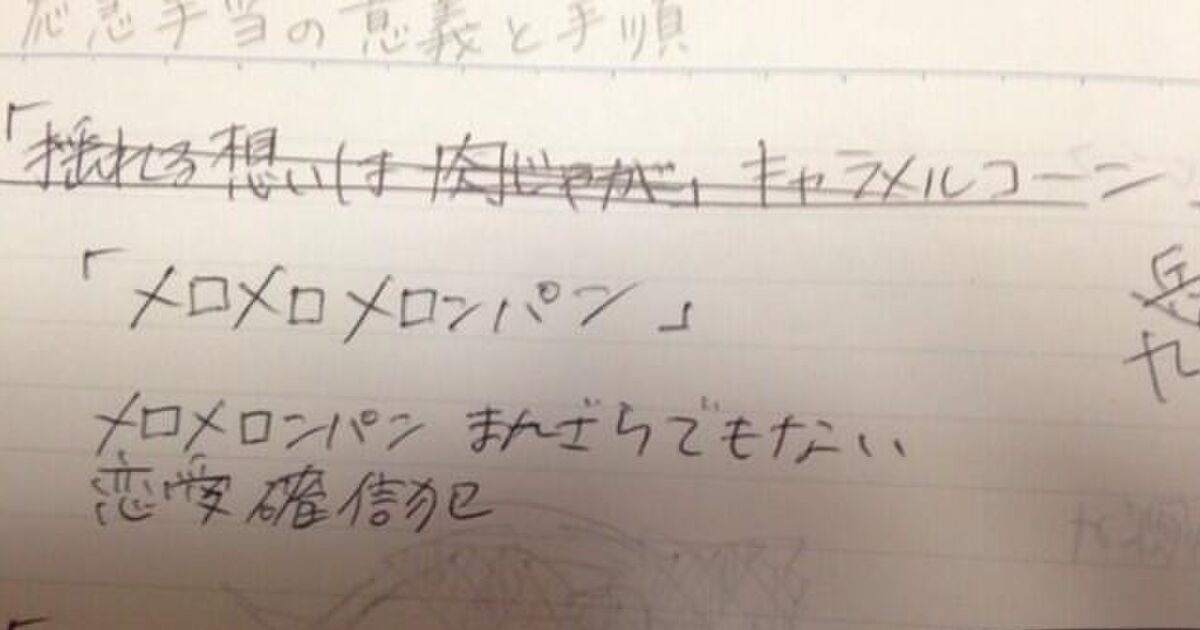 応急手当の意義と手順
「揺れる想いは肉じゃが」キャラメルコーン
「メロメロメロンパン」
メロメロンパン まんざらでもない
恋愛確信犯